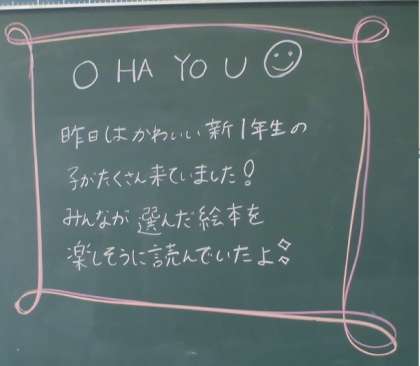 O HA YO U
昨日はかわいい新1年生の
子がたくさん来ていました!
みんなが選んだ絵本を
楽しそうに読んでいたよ